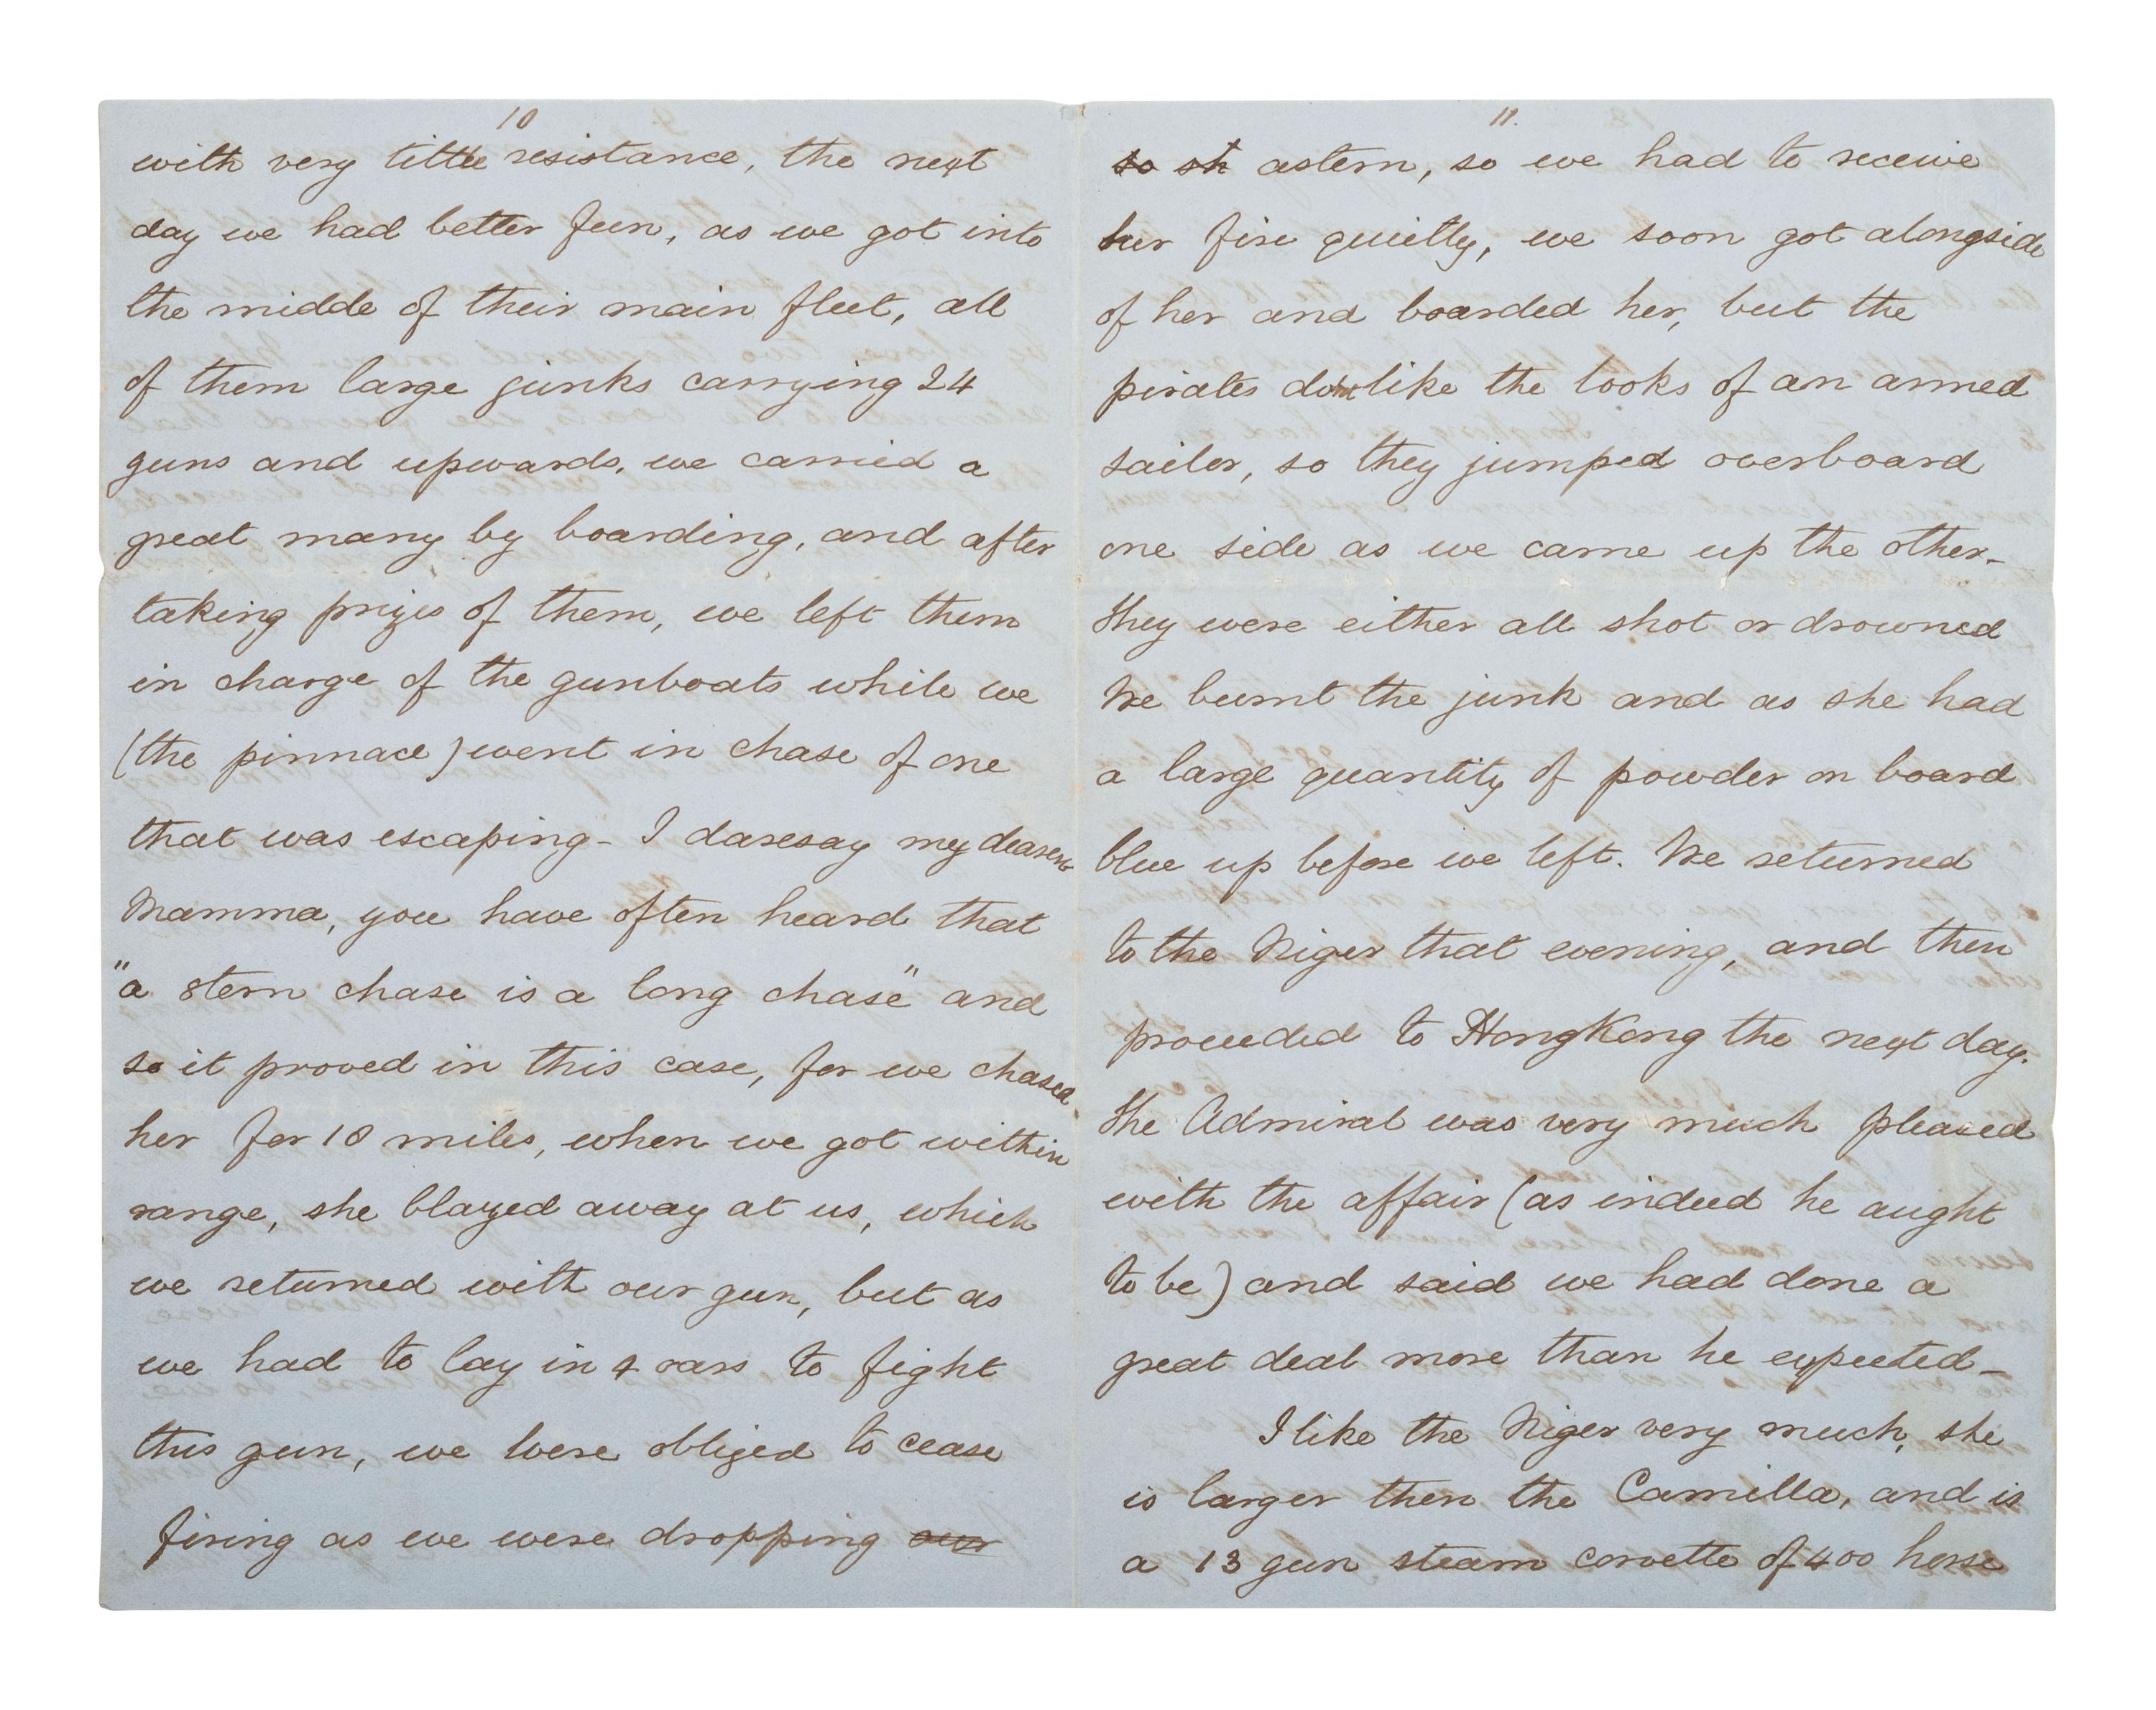 10
with very little resistance, the next
day we had better fun, as we got into
the midde of their main fleet, all
of them large junks carrying 24
guns and upwards, we carried a
great many by boarding, and after
taking prizes of them, we left them
in charge of the gunboats while we
(the pinnace) went in chase of one
that was escaping - I daresay my dearest
Mamma, you have often heard that
"a stern chase is a long chase" and
so it proved in this case, for we chased
her for 18 miles, when we got within
range, she blazed away at us, which
we returned with our gun, but as
we had to lay in 4 oars to fight
this gun, we were obliged to cease
firing as we were dropping
11.
so sh astern, so we had to receive
her fire quietly, we soon got alongside
of her and boarded her, but the
pirates dont like the looks of an armed
sailor, so they jumped overboard
one side as we came up the other -
they were either all shot or drowned
We burnt the junk and as she had
a large quantity of powder on board
blue up before we left. We returned
to the Niger that evening, and then
proceeded to HongKong the next day.
The Admiral was very much pleased
with the affair (as indeed he aught
to be) and said we had done a
great deal more than he expected -
I like the Niger very much, she
is larger then the Camilla, and is
a 13 gun steam corvette of 400 horse